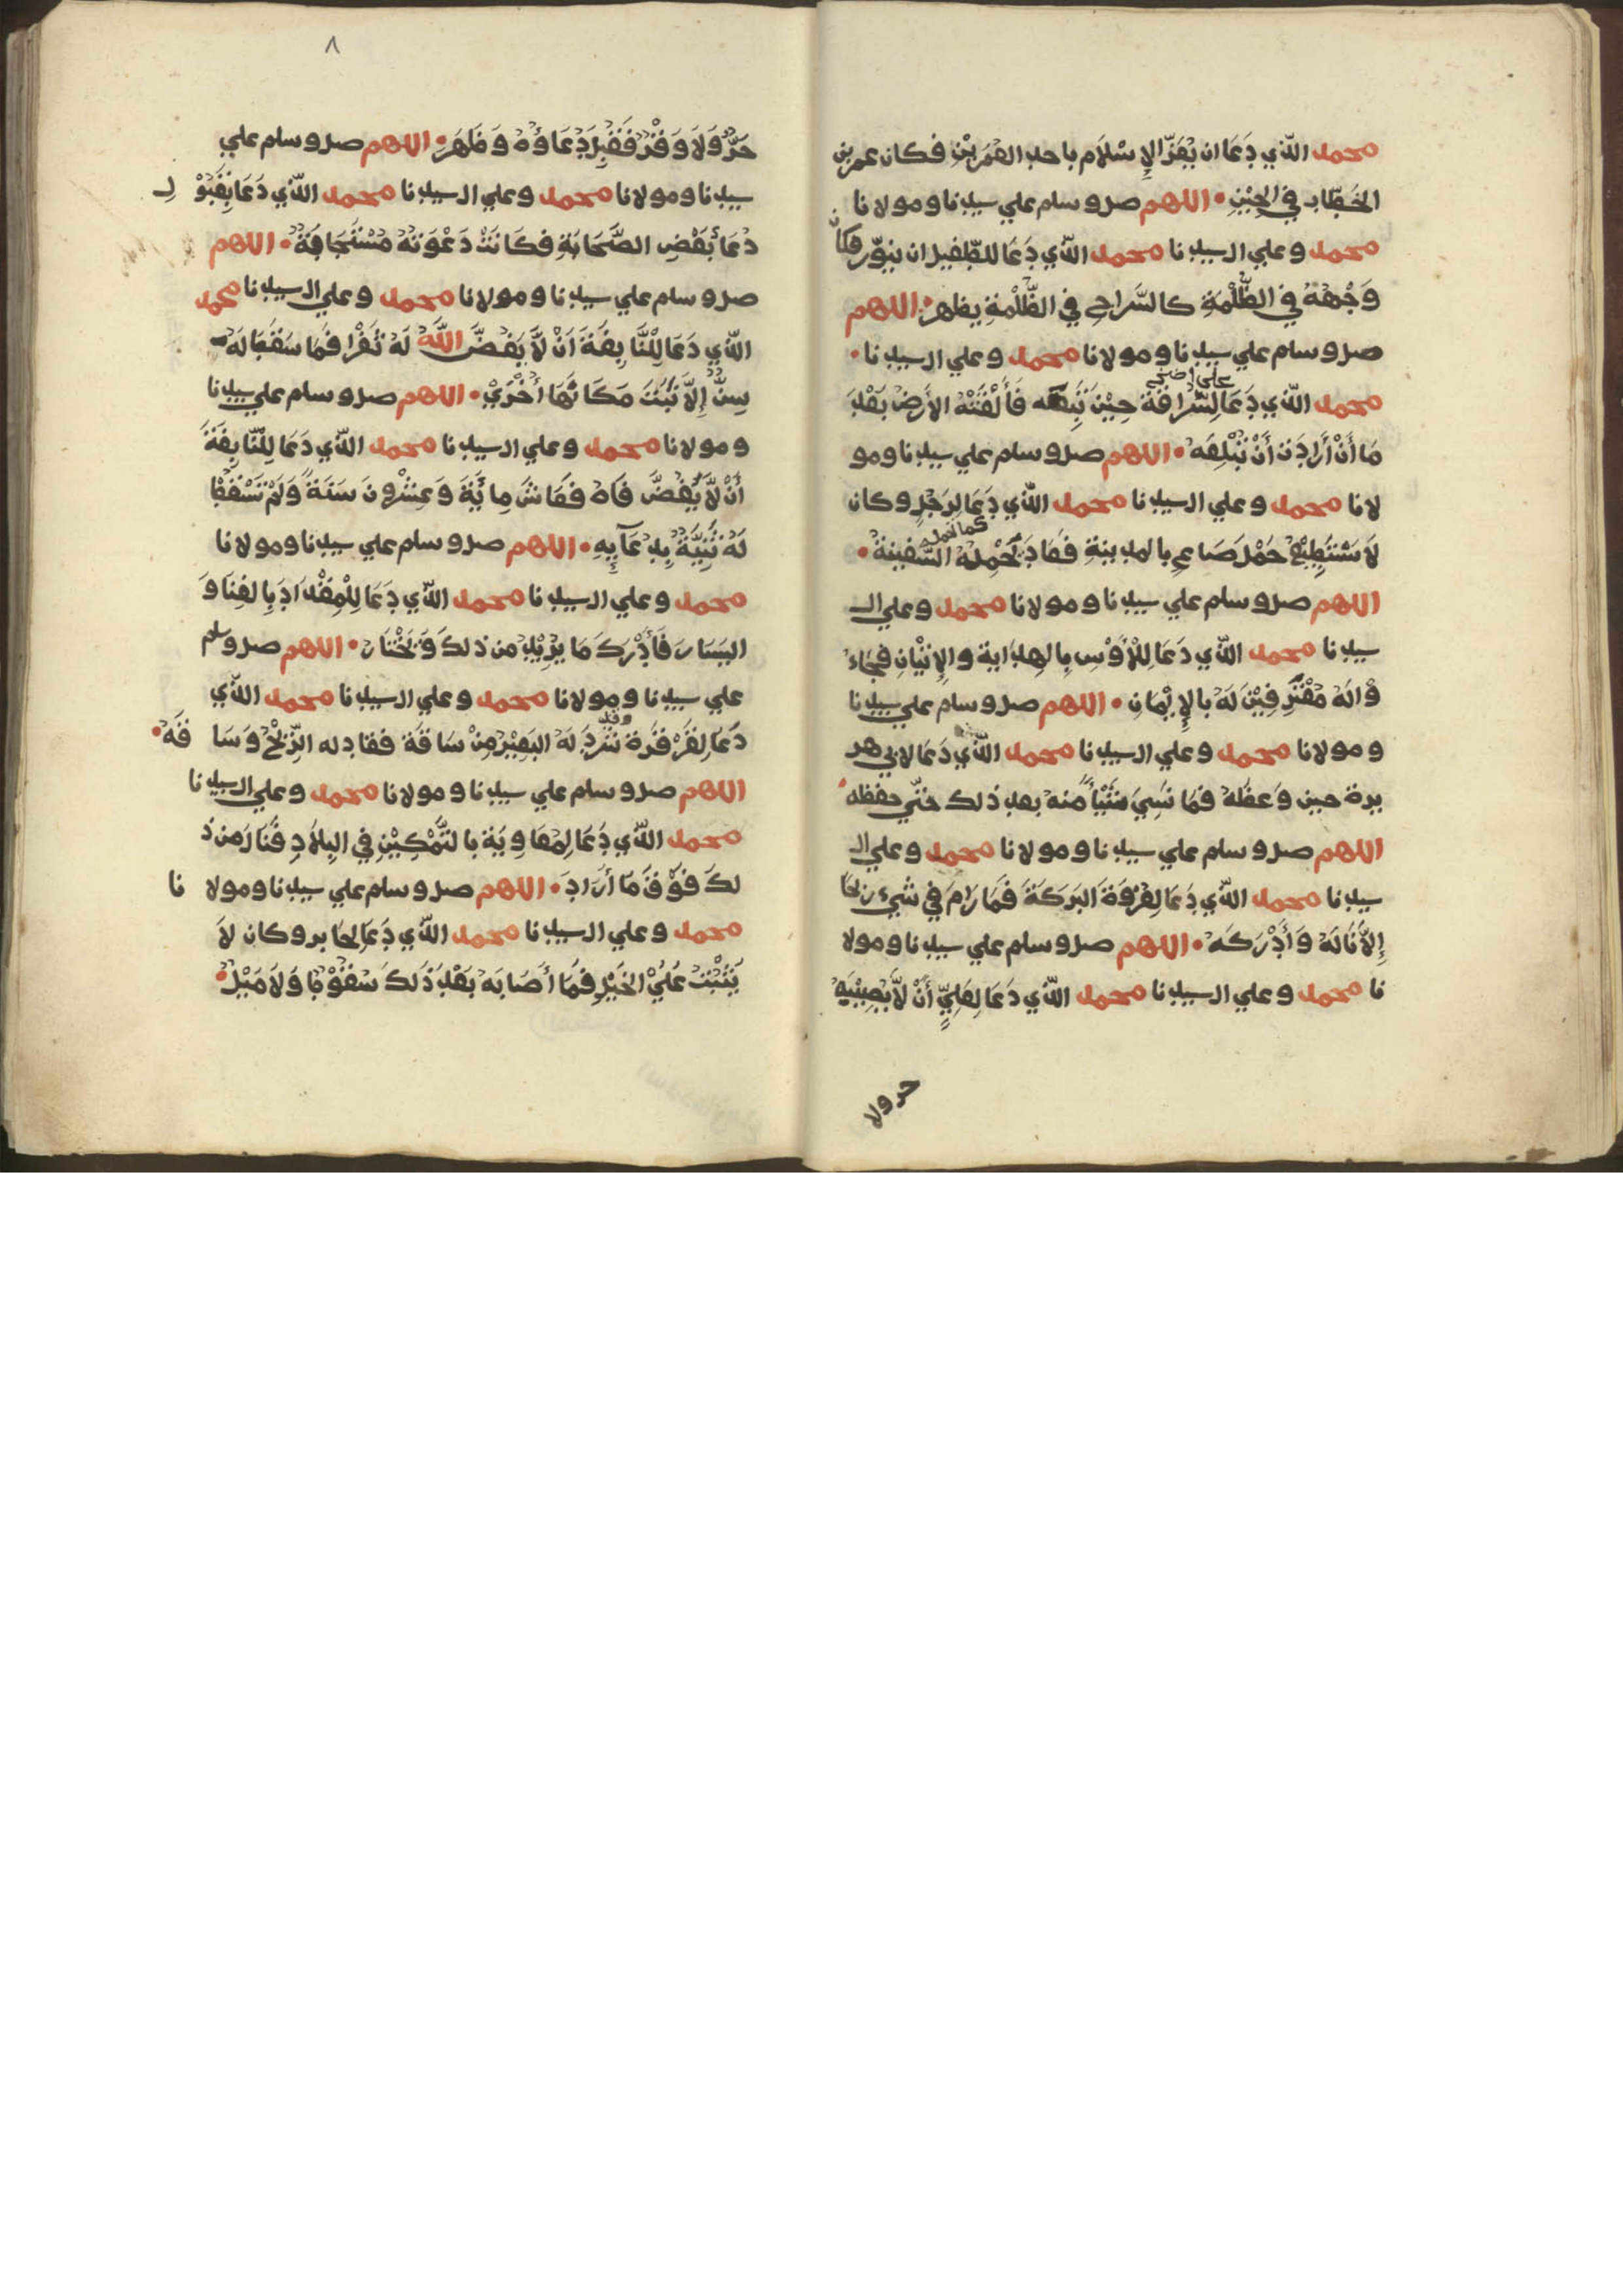 محمد الّذي دَعَا ان يُعَزّ الإِسْلَام باحد العُمَرَيْنِ فكان عمر بن
الخَطّاب في الحِيْنِ • اللهم صل وسلم علي سيدنا ومولانا
محمد وعلي ال سيدنا محمد الّذي دَعَا للطّفيل ان ينوّر فكان
وَجْهُهُ في الظُّلْمَةِ كالسَّراج في الظُّلْمَةِ يظهر • اللهم
صل وسلم علي سيدنا ومولانا محمد وعلي ال سيدنا •
محمد الّذي دَعَا لِسُّرَاقَة حِيْنَ تَبِعَه فَأَلْقَتْهُ الأَرْضُ بَعْدَ
مَا أَنْ أَرَادَتْ أَنْ تَبْلَعَهُ • اللهم صل وسلم علي سيدنا ومو
لانا محمد وعلي ال سيدنا محمد الّذي دَعَا لِرَجُلٍ وكان
لَا يَسْتَطِيْعُ حَمْلَ صَاعٍ بالمدينةِ فَعَادَ يَحْمِلُهُ كما تحمله السَّفِينَةُ •
اللهم صل وسلم علي سيدنا ومولانا محمد وعلي ال
سيدنا محمد الّذي دَعَا لِلْأَوْسِ بِالهِدَاية والإِتْيَانِ فَجَاءُ
وْا لَهُ مُعْتَرِفِيْنَ لَهُ بالإِيْمَانِ • اللهم صل وسلم علي سيدنا
ومولانا محمد وعلي ال سيدنا محمد الّذي دَعَا لابي هر
يرة حين وَعظَهُ فَمَا نَسِيَ شَيْأً مِنهُ بعد ذلك حتّي حفظه •
اللهم صل وسلم علي سيدنا ومولانا محمد وعلي ال
سيدنا محمد الّذي دَعَا لِعُرْوَةَ البَرَكَةَ فَمَا رَامَ في شَيْءٍ رِبْحًا
إِلَّا نَالَهُ وَأَدْرَكَهُ • اللهم صل وسلم علي سيدنا ومولا
نا محمد وعلي ال سيدنا محمد الّذي دَعَا لِعَلِيٍّ أَنْ لَّا يُصِيْبَهُ
حر ولا
٨
حَرٌّ وَلَا وَقَرٌّ فَقُبِلَ دُعَاؤُهُ وَظَهَرَ • اللهم صل وسلم علي
سيدنا ومولانا محمد وعلي ال سيدنا محمد الّذي دَعَا بِقُبُوْ لِ
دُعَا بَعْضِ الصَّحَابَةِ فكَانَتْ دَعْوَتُهُ مُسْتَجَابَةٌ • اللهم
صل وسلم علي سيدنا ومولانا محمد وعلي ال سيدنا محمد
الّذي دَعَا لِلْنَّابِغَةَ اَنْ لَّا يَفُضَّ اللّهُ لَهُ ثَغْرا فَمَا سَقَطَ لَهُ
سِنٌّ إِلَّا نَبَتَ مَكَانَهَا أُخْرَيْ • اللهم صل وسلم علي سيدنا
ومولانا محمد وعلي ال سيدنا محمد الّذي دَعَا لِلْنّابِغَةَ
أَنْ لَّا يُفَضَّ فَاهُ فَعَاشَ مِائَةَ وَعِشْرُونَ سَنَةً وَلَمْ تَسْقُطْ
لَهُ ثَنِيَّةٌ بِدُعَآئِهِ • اللهم صل وسلم علي سيدنا ومولانا
محمد وعلي ال سيدنا محمد الّذي دَعَا لِلْمِقْدَادَ بِالغِنَا وَ
اليَسَار فَأَدْرَكَ مَا يُرِيْدُ من ذلكَ وَيَخْتَارُ • اللهم صل وسلم
علي سيدنا ومولانا محمد وعلي ال سيدنا محمد الّذي
محمد الّذي دَعَا لِمُعَاوِيَةَ بالتَّمْكِيْنِ في البِلَادِ فَنَالَ من ذَ
لكَ فَوْقَ مَا أَرَادَ • اللهم صل وسلم علي سيدنا ومولا نا
محمد وعلي ال سيدنا محمد الّذي دَعَا لجابر وكان لَا
يَثْبُتُ عَلَيْ الخَيْلِ فَمَا أَصَابَهُ بَعْدَ ذَلكَ سُقُوْطًا وَلَا مَيْلٌ •